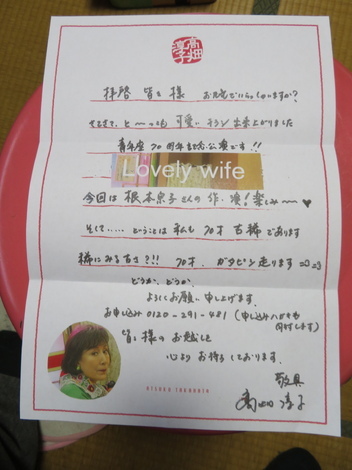 高畑淳子
拝啓 皆々様 お元気でいらっしゃいますか?
さてさて、と〜っても 可愛い チラシ 出来上がりました
青年座70周年記念公演です!!
Lovely wife
今回は 根本宗子さんの作・演! 楽しみ〜♥
そして……ということは 私も 70才 古稀であります
稀にみる古さ?!! 70才、ガタピシ走ります
どうか、どうか、
よろしくお願い申し上げます。
お申し込み 0120-291-481 (申し込みハガキも
同封します)
皆々様のお越しを
心よりお待ちしております。
敬具
ATSUKO TAKAHATA
高畑淳子